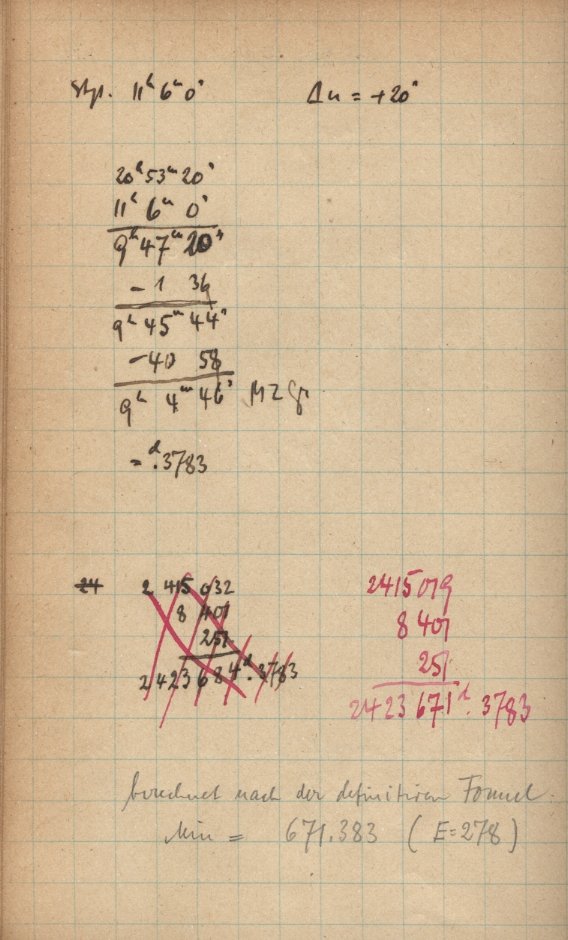 Stzt. 11ʰ 6ᵐ 0ˢ Δu = +20ˢ
20ʰ 53ᵐ 20ˢ
11ʰ 6ᵐ 0ˢ
9ʰ 47ᵐ 20ˢ
- 1 36
9ʰ 45ᵐ 44ˢ
- 40 58
9ʰ 4ᵐ 46ˢ MZ Gr
= ᵈ.3783
24 2 415 032 2415 019
8 401 8 401
251 251
2 423 684ᵈ.3783 24 23 671ᵈ.3783
berechnet nach der definitiven Formel.
Min = 671.383 (E=278)